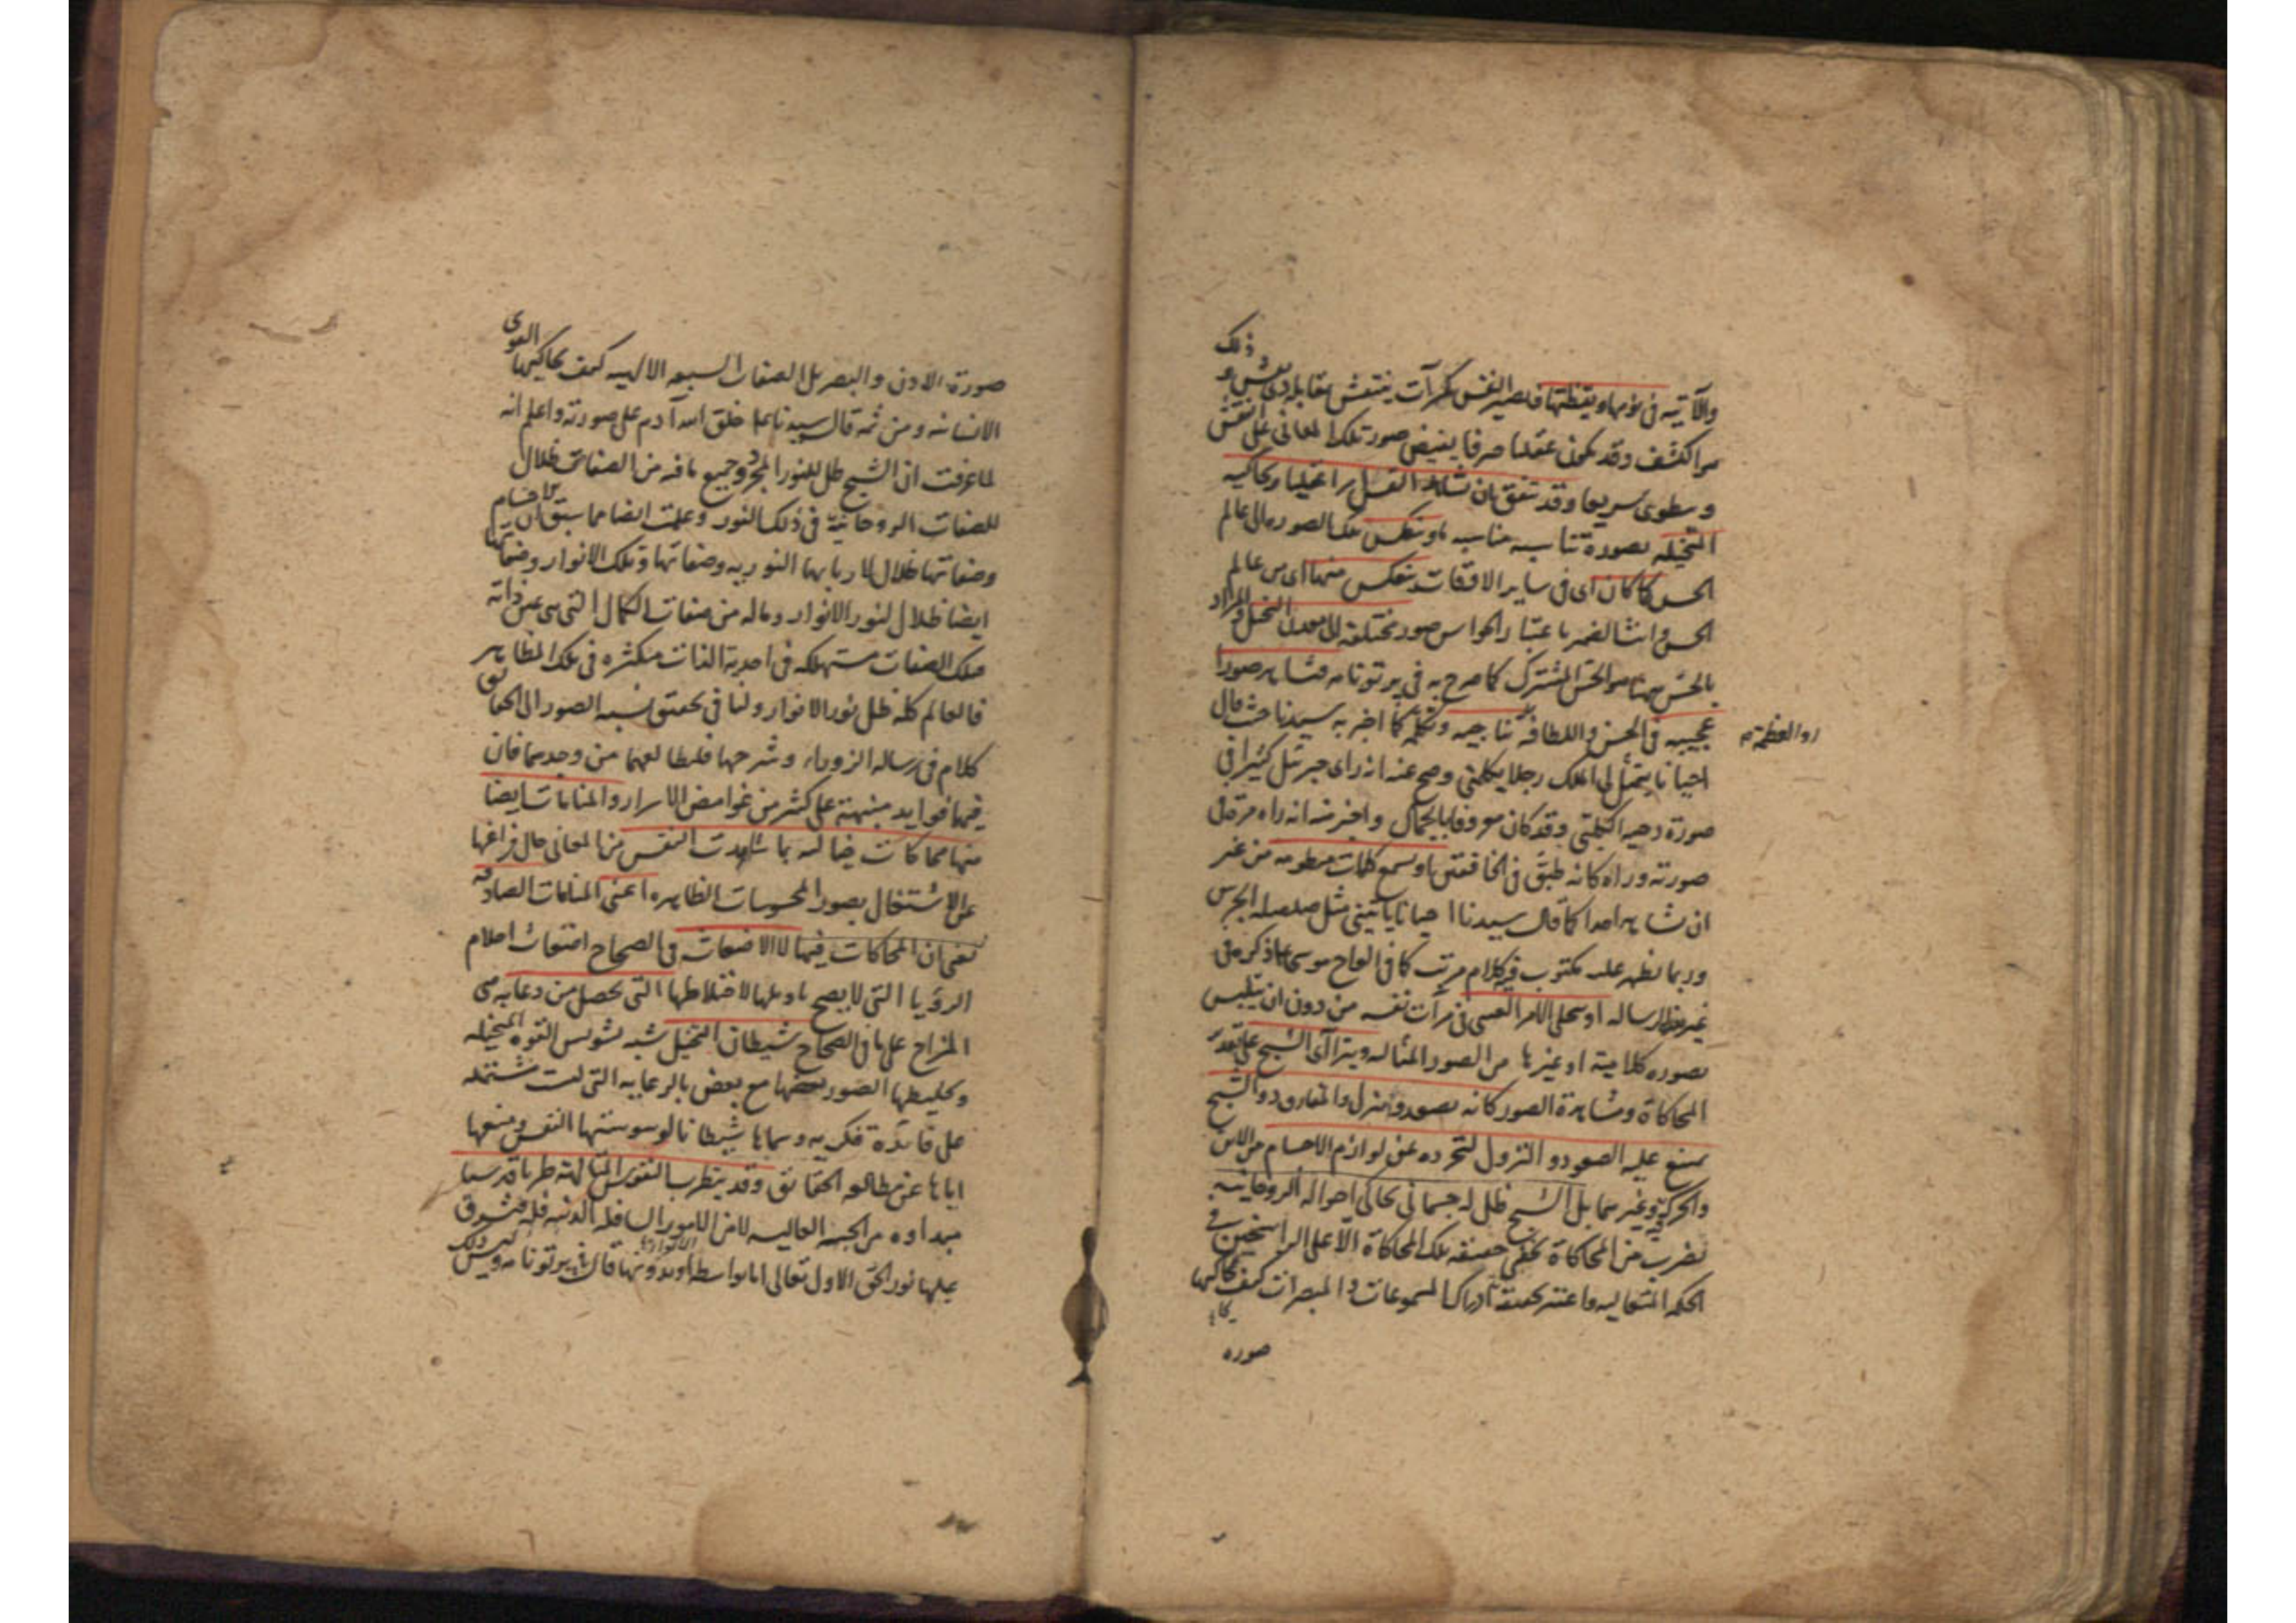 ذلك
والآتية في نومها ويقظتها فتصير النفس كمرآت ينتقش بمقابلة ذي نقش و
من اكتشف وقد يكون عقليا صرفا يفيض صورة تلك المعاني على النفس
وينطوي سريعا وقد يتفق ان تشاهد النفس امرا عقليا ويحاكيه
المتخيلة بصورة تناسبه مناسبة ما وينعكس تلك الصورة الى عالم
الحس كما كان اى في ساير الاوقات ينعكس منها اى من عالم
الحس وانث الضمير باعتبار الحواس صور مختلفة الى معدن التخيل والمراد
بالحس ههنا هو الحس المشترك كما صرح به في پرتونامه فتشاهد صورا
عجيبة في الحسن واللطافة تناجيه وتكلمه كما اخبر به سيدنا حيث قال
او العظمة م
احيانا يتمثل لى الملك رجلا يكلمنى وصح عنه انه راى جبرئيل كثيرا في
صورة دحية الكلبى وقد كان معروفا بالجمال واخبر منه انه راه مرة في
صورته وراه كانه طبق في الخافقين او يسمع كلمات منظومة من غير
ان تشاهد احدا كما قال سيدنا احيانا ياتينى مثل صلصلة الجرس
وربما يظهر عليه مكتوب فيه كلام مرتب كما في الواح موسى على ما ذكره في
غير هذه الرسالة او يتجلى الامر الغيبى في مرآت نفسه من دون ان يتلبس
بصورة كلامية او غيرها من الصور المثالية ويتراآى الشبح على تقدير
المحاكاة ومشاهدة الصور كانه يصعد وينزل والمفارق ذو الشبح
يمتنع عليه الصعود والنزول لتجرده عن لوازم الاجسام من الاين
والحركة وغيرهما بل الشبح ظل له جسماني يحاكى احواله الروحانية
بضرب من المحاكاة يخفى حقيقة تلك المحاكاة الا على الراسخين في
الحكمة المتعالية واعتبر بحقيقة ادراك المسموعات والمبصرات كيف يحاكيها
صوره
القوى
صورة الاذن والبصر بل الصفات السبعه الالهيه كيف يحاكيها
الانسانية ومن ثمه قال سيدنا خلق الله آدم على صورته واعلم انه
لما عرفت ان الشبح ظل للنور المجرد وجميع ما فيه من الصفات ظلال
للصفات الروحانية في ذلك النور وعلمت ايضا مما سبق ان الاجسام
وصفاتها ظلال لاربابها النورية وصفاتها وتلك الانوار وصفاتها
ايضا ظلال لنور الانوار وماله من صفات الكمال التى هى عين ذاته
فتلك الصفات مستهلكة في احدية الذات متكثرة في تلك المظاهر
فالعالم كله ظل نور الانوار ولنا في تحقيق نسبه الصور الى الحقائق
كلام في رسالة الزوراء وشرحها فليطالعهما من وجدهما فان
فيهما فوايد منبهة على كثير من غوامض الاسرار والمنامات ايضا
منها محاكات خيالية بما شاهدت النفس من المعانى حال فراغها
عن الاشتغال بصور المحسوسات الظاهرة اعنى المنامات الصادقة
يعنى ان المحاكات فيها لا الاضغاث في الصحاح اضغاث احلام
الرؤيا التى لا يصح تاويلها لاختلاطها التى تحصل من دعابة هى
المزاح على ما في الصحاح شيطان التخيل شبه تشويش القوة المتخيلة
وتخليطها الصور بعضها مع بعض بالدعابه التى ليست مشتملة
على فائدة فكرية وسماها شيطانا لوسوستها النفس ومنعها
اياها عن مطالعة الحقائق وقد يتطرب النفوس المتالهة طربا قدسيا
مبداوه من الجنبة العالية لا من الامور السافلة الدنية فله فيشرق
عليها نور الحق الاول تعالى اما بواسطة او بدونها قال في پرتونامه وليس ذلك